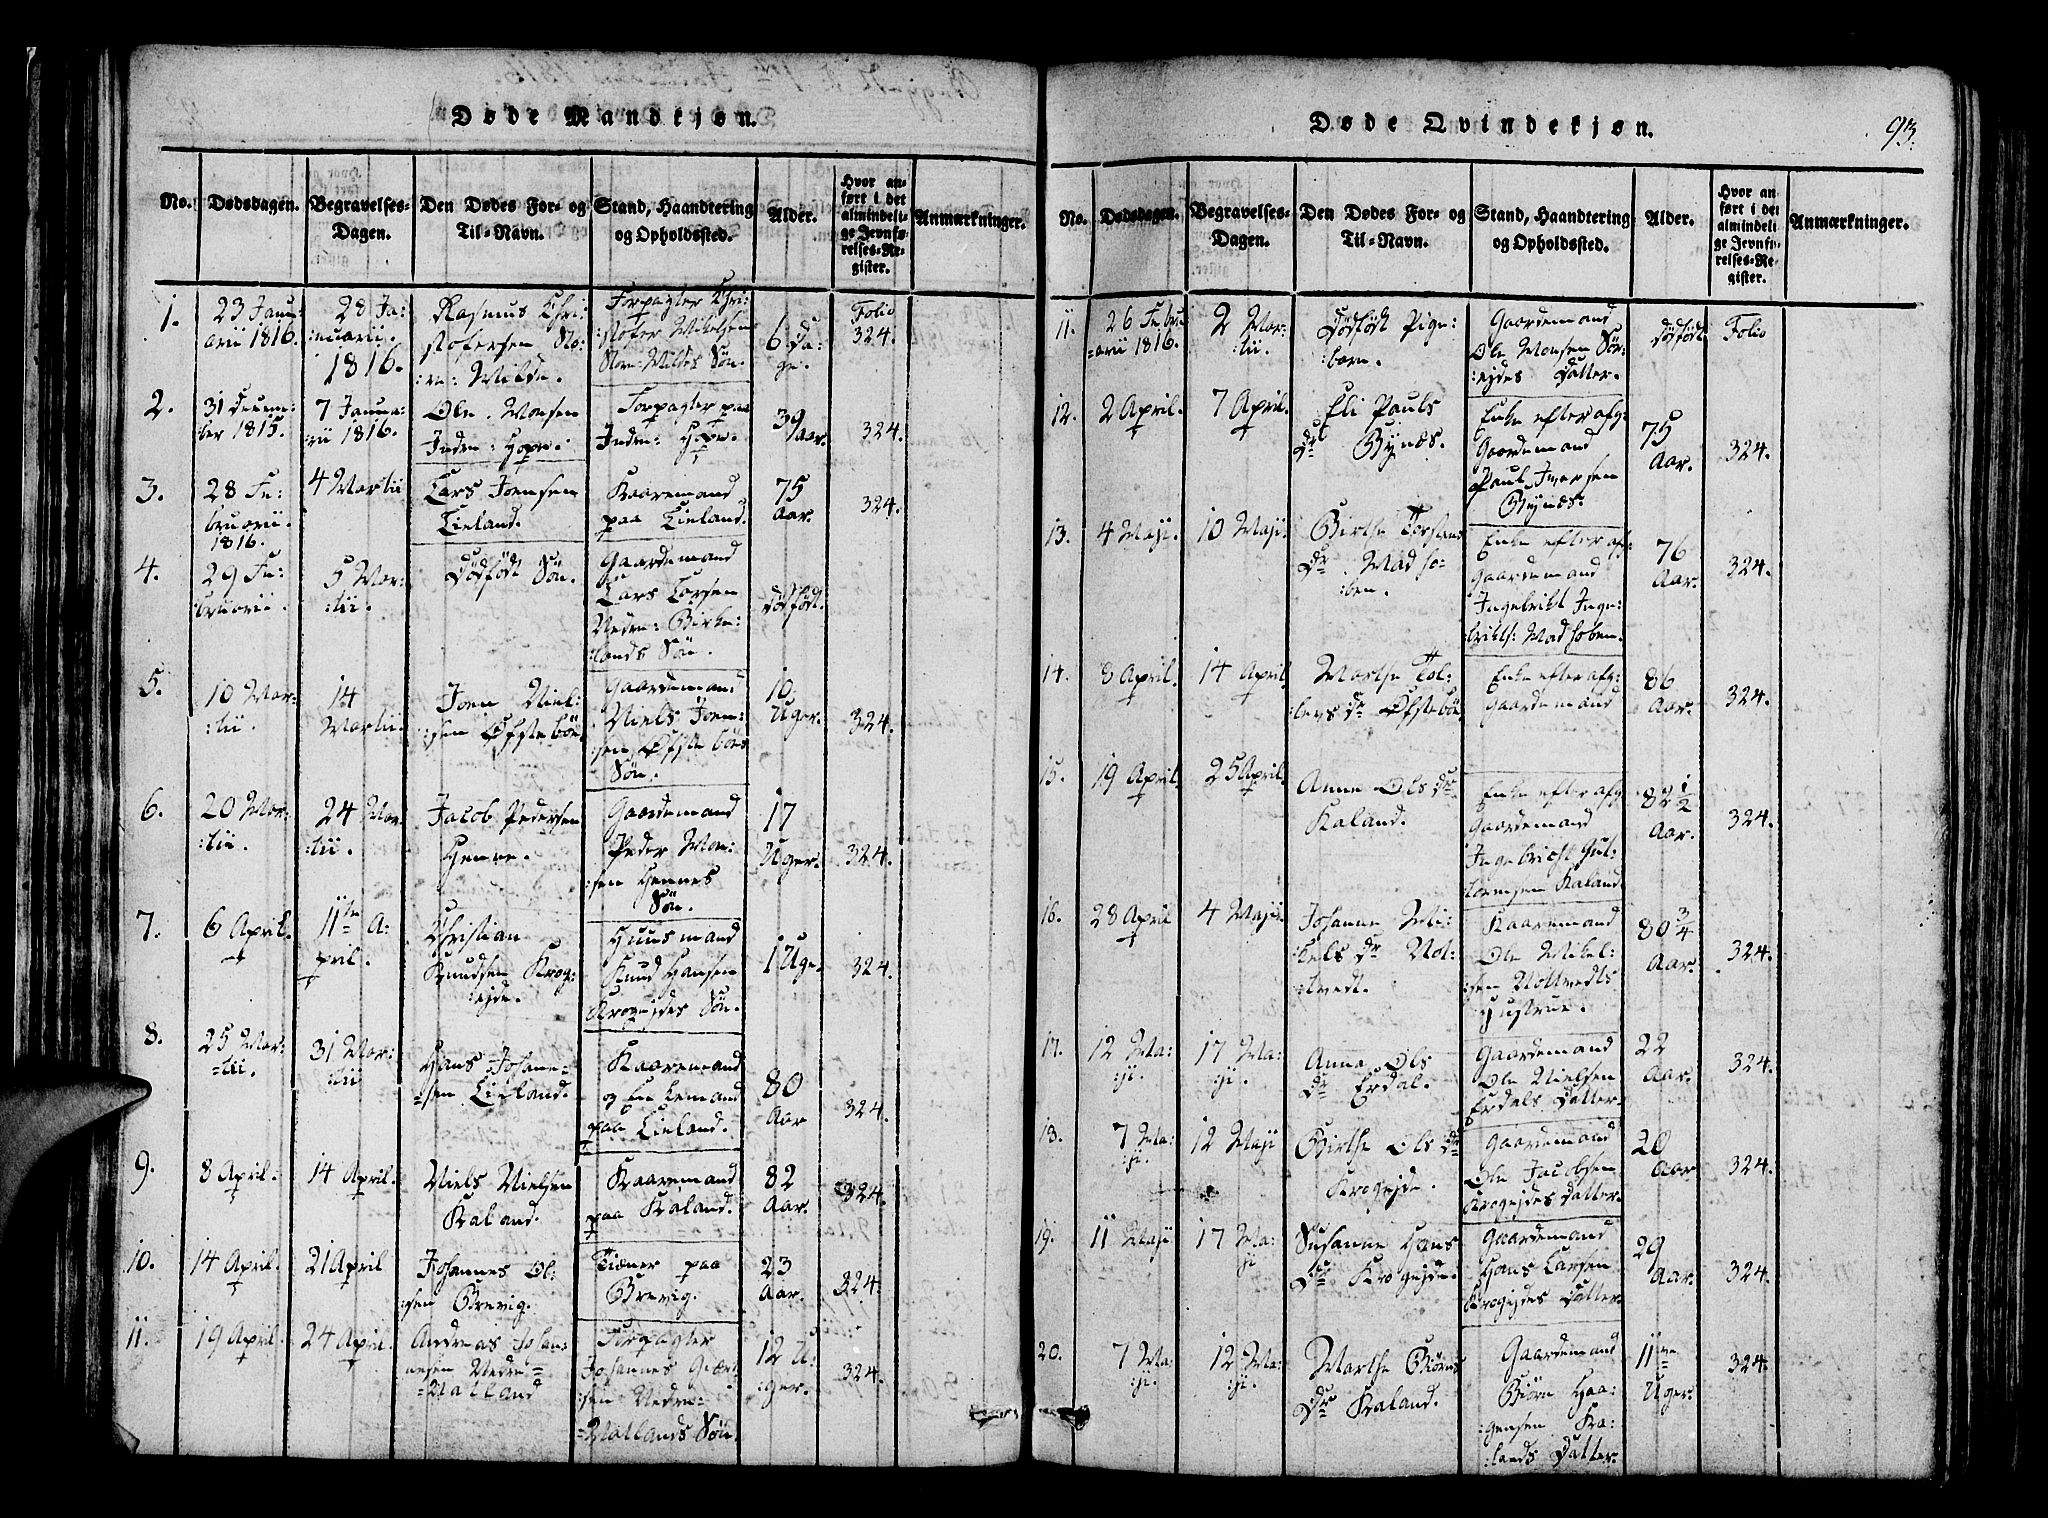 Døde Mandkjøn.
No.
Dødsdagen.
Begravelses-
Dagen.
Den Dødes For- og
Til-Navn.
Stand, Haandtering
og Opholdssted.
Alder.
Hvor an-
ført i det
almindeli-
ge Jevnfø-
relses-Re-
gister.
Anmærkninger.
1.
23 Janu
arii 1816.
28 Ja-
:nuarii.
1816.
Rasmus Chri
:stofersen
:re: Wilde.
Forpagter Chri
:stofer Mikelsen
Store-Wildes Søn.
6 Da-
ge.
Folio
324.
2.
31 Decem-
ber 1815.
7 Janua-
rii 1816.
Ole Monsen
Indre: Hope.
Forpagter paa
Indre: Hope.
39
Aar.
324.
3.
28 Fe:
bruarii.
1816.
4 Martii
Lars Joensen
Lieland.
Kaaremand
paa Lieland.
75
Aar.
324.
4.
29 Fe:
bruarii.
5 Mar:
:tii.
Dödfödt Sön.
Gaardemand
Lars Larsen
Nedre: Birke:
:lands Sön.
dödfödt.
5.
10 Mar:
:tii.
14
Martii.
Joen Niel:
:sen Öfstebön
Gaardemand
Niels Joen-
:sen Öfstebös
Sön.
10
Uger.
324.
6.
20 Mar:
:tii.
24 Mar
:tii.
Jacob Pedersen
Henne.
Gaardemand
Peder Mon:
:sen Hennes
Sön.
17
Uger.
324.
7.
6 April.
11te A:
pril.
Christian
Knudsen Krog:
:ejde.
Huusmand
Knud Hansen
Krogejdes Sön.
1 Uge.
324.
8.
25 Mar:
:tii.
31 Mar:
:tii
Hans Johane-
:sen Lieland.
Kaaremand
og Enkemand
paa Lieland.
80
Aar
324.
9.
8 April.
14 April.
Niels Nielsen
Kaland.
Kaaremand
paa Kaland.
82
Aar.
324.
10.
14 April.
21 April
Johannes Ol:
:sen Brevig.
Tiener paa
Brevig.
23
Aar.
324.
11.
19 April.
24 April.
Andreas Johan
nesen Nedre-
=Natland
Forpagter
Johannes
:sen Nedre-
=Natlands Sön.
12 U:
:ger.
324.
Døde Qvindekjøn.
93.
No.
Dødsdagen.
Begravelses-
Dagen.
Den Dødes For- og
Til-Navn.
Stand, Haandtering
og Opholdssted.
Alder.
Hvor an
ført i det
almindeli
ge Jevnfø-
relses-Re-
gister.
Anmærkninger.
11.
26 Febru
=arii 1816.
2 Mar-
:tii.
Dödfödt Pige:
:barn.
Gaardemand
Ole Monsen Sör:
:ejdes Datter.
dödfödt
Folio
12.
2 April.
7 April.
Eli Pauls
Dr Bynæs.
Enke efter afg:
Gaardemand
Paul Iversen
Bynæs.
75
Aar.
324.
13.
4 Maji.
10 Maji.
Birthe Torstens
Dr. Madso-
ben.
Enke efter afg:
Gaardemand
Ingebrikt Inge:
brikts: Madsoben.
76
Aar.
324.
14.
8 April.
14 April.
Marthe Tol:
:levs Dr Öfstebön
Enke efter afg:
Gaardemand
86
Aar.
324.
15.
19 April.
25 April.
Anne Ols Dr
Kaland.
Enke efter afg
Gaardemand
Ingebricht Gut:
:tormsen Kaland.
82 1/2
Aar.
324.
16.
28 April
4 Maji.
Johanne Mi:
kels Dr Not:
:tvedt.
Kaaremand
Ole Mikel:
:sen Nottvedts
Hustrue.
80 3/4
Aar.
324.
17.
12 Ma:
:ji.
17 Ma:
:ji.
Anna Ols
Dr Erdal.
Gaardemand
Ole Nielsen
Erdals Datter.
22
Aar.
324.
18.
7 Ma:
:ji.
12 Maji
Birthe Ols Dr
Krogejde.
Gaardemand
Ole Jacobsen
Krogejdes Datter.
20
Aar
324.
19.
11 Maji
17 Ma:
ji
Susanne Hans
Dr Krogejde.
Gaardemand
Hans Larsen
Krogejdes Datter.
29
Aar.
324.
20.
7 Ma:
:ji.
12 Ma:
:ji.
Marthe Biörns
Dr Kaland.
Gaardemand
Biörn Haa:
gensen Ka:
:lands Datter.
11
Uger.
324.